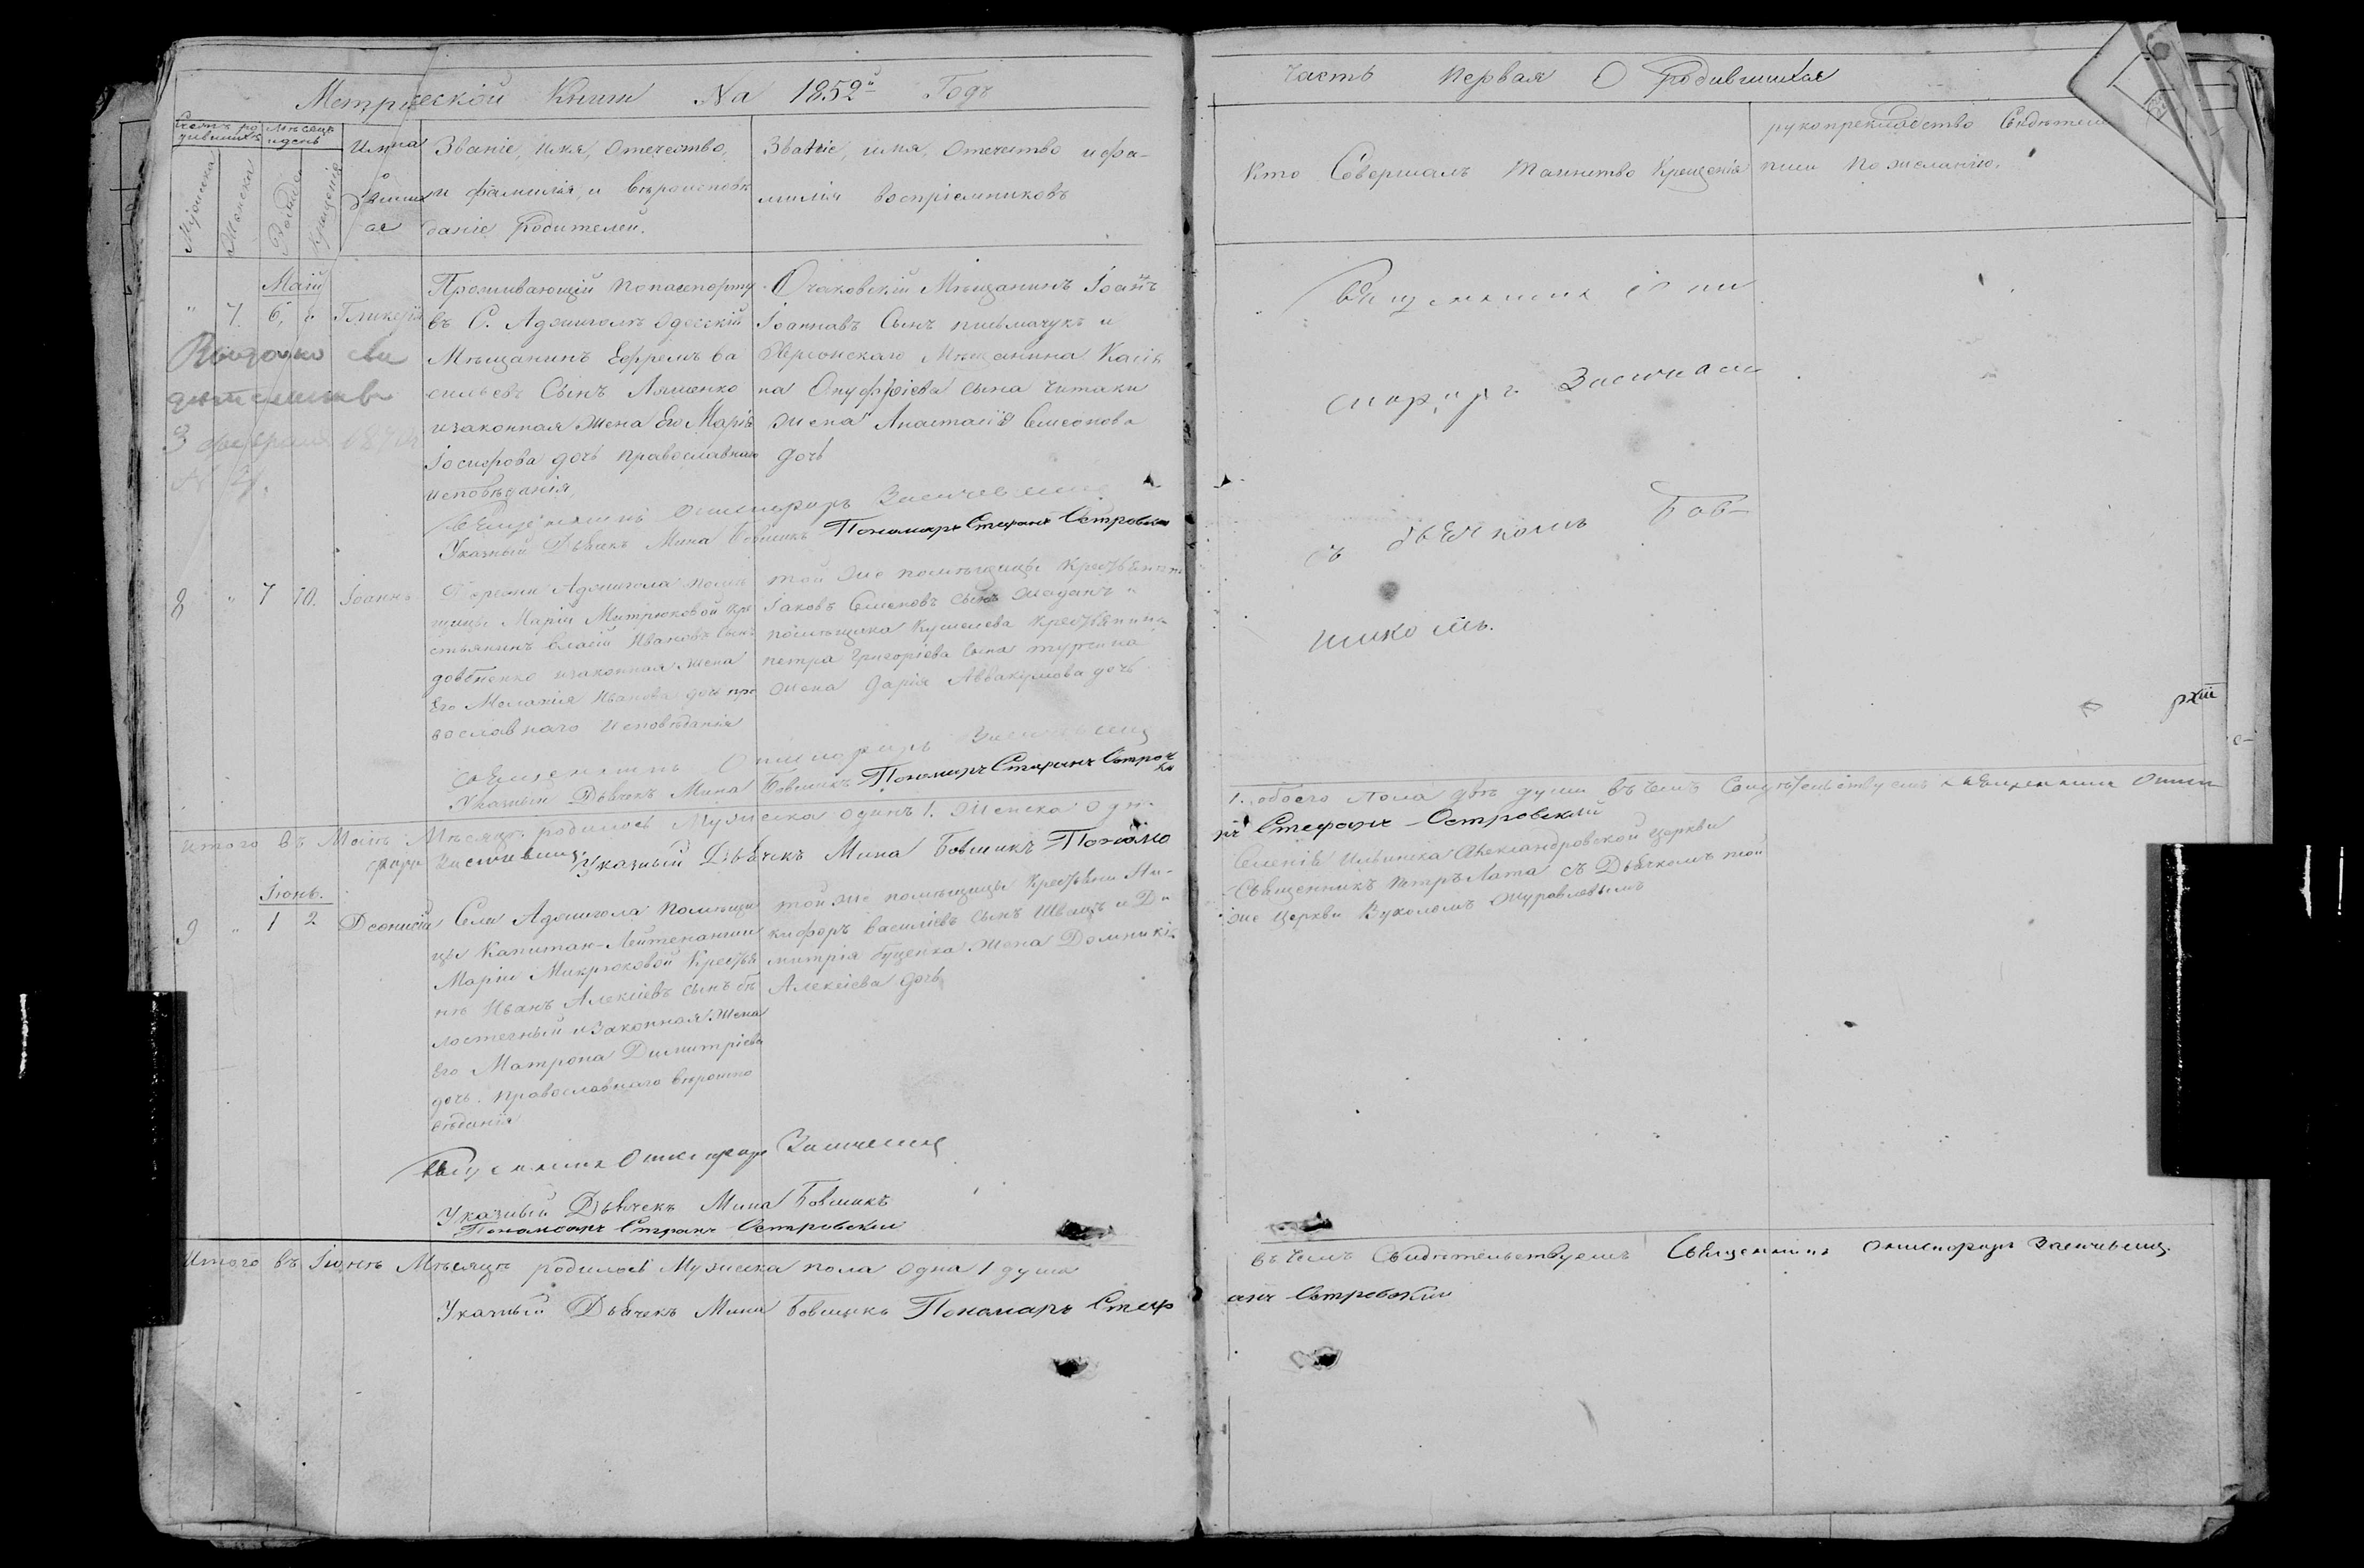 Метрической Книги На 1852й Годъ
Счетъ родившихся
Мѣсяцъ и день
Имена
Мужеска
Женска
Рожденія
Крещенія
Званіе, имя, отечество,
и фамилія, и вѣроисповѣ
даніе Родителей.
Званіе, имя, отечество и фа-
милія воспріемниковъ
Маій
" 7. 6, 8 Гликерія
Проживающій попаспорту
въ С. Аджиголѣ Одесскій
Мѣщанинъ Ефремъ Ва
сильевъ Сынъ Ляшенко
изаконная жена Его Марія
Іосифова дочь православнаго
исповѣданія,
Очаковскій Мѣщанинъ Іоаннъ
Іоанновъ Сынъ письмачукъ и
Херсонскаго Мѣщанина Касія
на Онуффріева сына Читаки
жена Анастасія Семеонова
дочь
3 февраля
Указный Дьячекъ Мина Бовшикъ Пономарь Стефанъ Островскій
8 " 7 10. Іоаннъ
Деревни Аджигола помѣ
щицы Маріи Митрюковой Кре
стьянинъ Власій Ивановъ Сынъ
довбненко изаконная жена
Его Меланія Иванова дочь пра
вославнаго исповѣданія
той же помѣщицы Крестьянинъ
Іаковъ Семеновъ Сынъ Жаданъ и
помѣщика Кушелева Крестьянина
петра Григоріева Сына
жена Дарія Аввакумова дочь
Указный Дьячекъ Мина Бовшикъ Пономарь Стефанъ Островскій
Итого въ Маіи Мѣсяцѣ родилось Мужеска одинъ 1. Женска одн
Указный Дьячекъ Мина Бовшикъ Пономо
Іюнь.
9 " 1 2 Деонисій
Села Аджигола помѣщи
цы Капитан-Лейтенанши
Маріи Микрюковой Крестья
нъ Иванъ Алексіевъ сынъ бѣ
лостечный изаконная жена
Его Матрона Димитріева
дочь. православнаго вѣроиспо
вѣданія
той же помѣщицы Крестьяни Ни-
кифоръ Василіевъ Сынъ Швецъ и Ди
митрія буценка жена Домникія
Алексіева дочь
Указный Дьячекъ Мина Бовшикъ
Пономарь Стефанъ Островскій
Итого въ Іюнѣ Мѣсяцѣ родилось Мужеска пола одна 1 душа
Указный Дьячекъ Мина Бовшикъ Пономарь Стеф
Часть первая О Родившихся
Кто Совершалъ Таинство Крещенія
рукоприкладство Свидѣтелей
по желанію.
съ дьячкомъ Бов-
шикомъ.
1. обоего пола двѣ души въ чемъ Свидѣтельствуемъ
рь Стефанъ Островскій
Селенія Ильинка Александровской Церкви
Священникъ петръ Лата съ Дьячкомъ той
же Церкви Вуколомъ Журовлевымъ
въ чемъ Свидѣтельствуемъ Священникъ
анъ Островскій